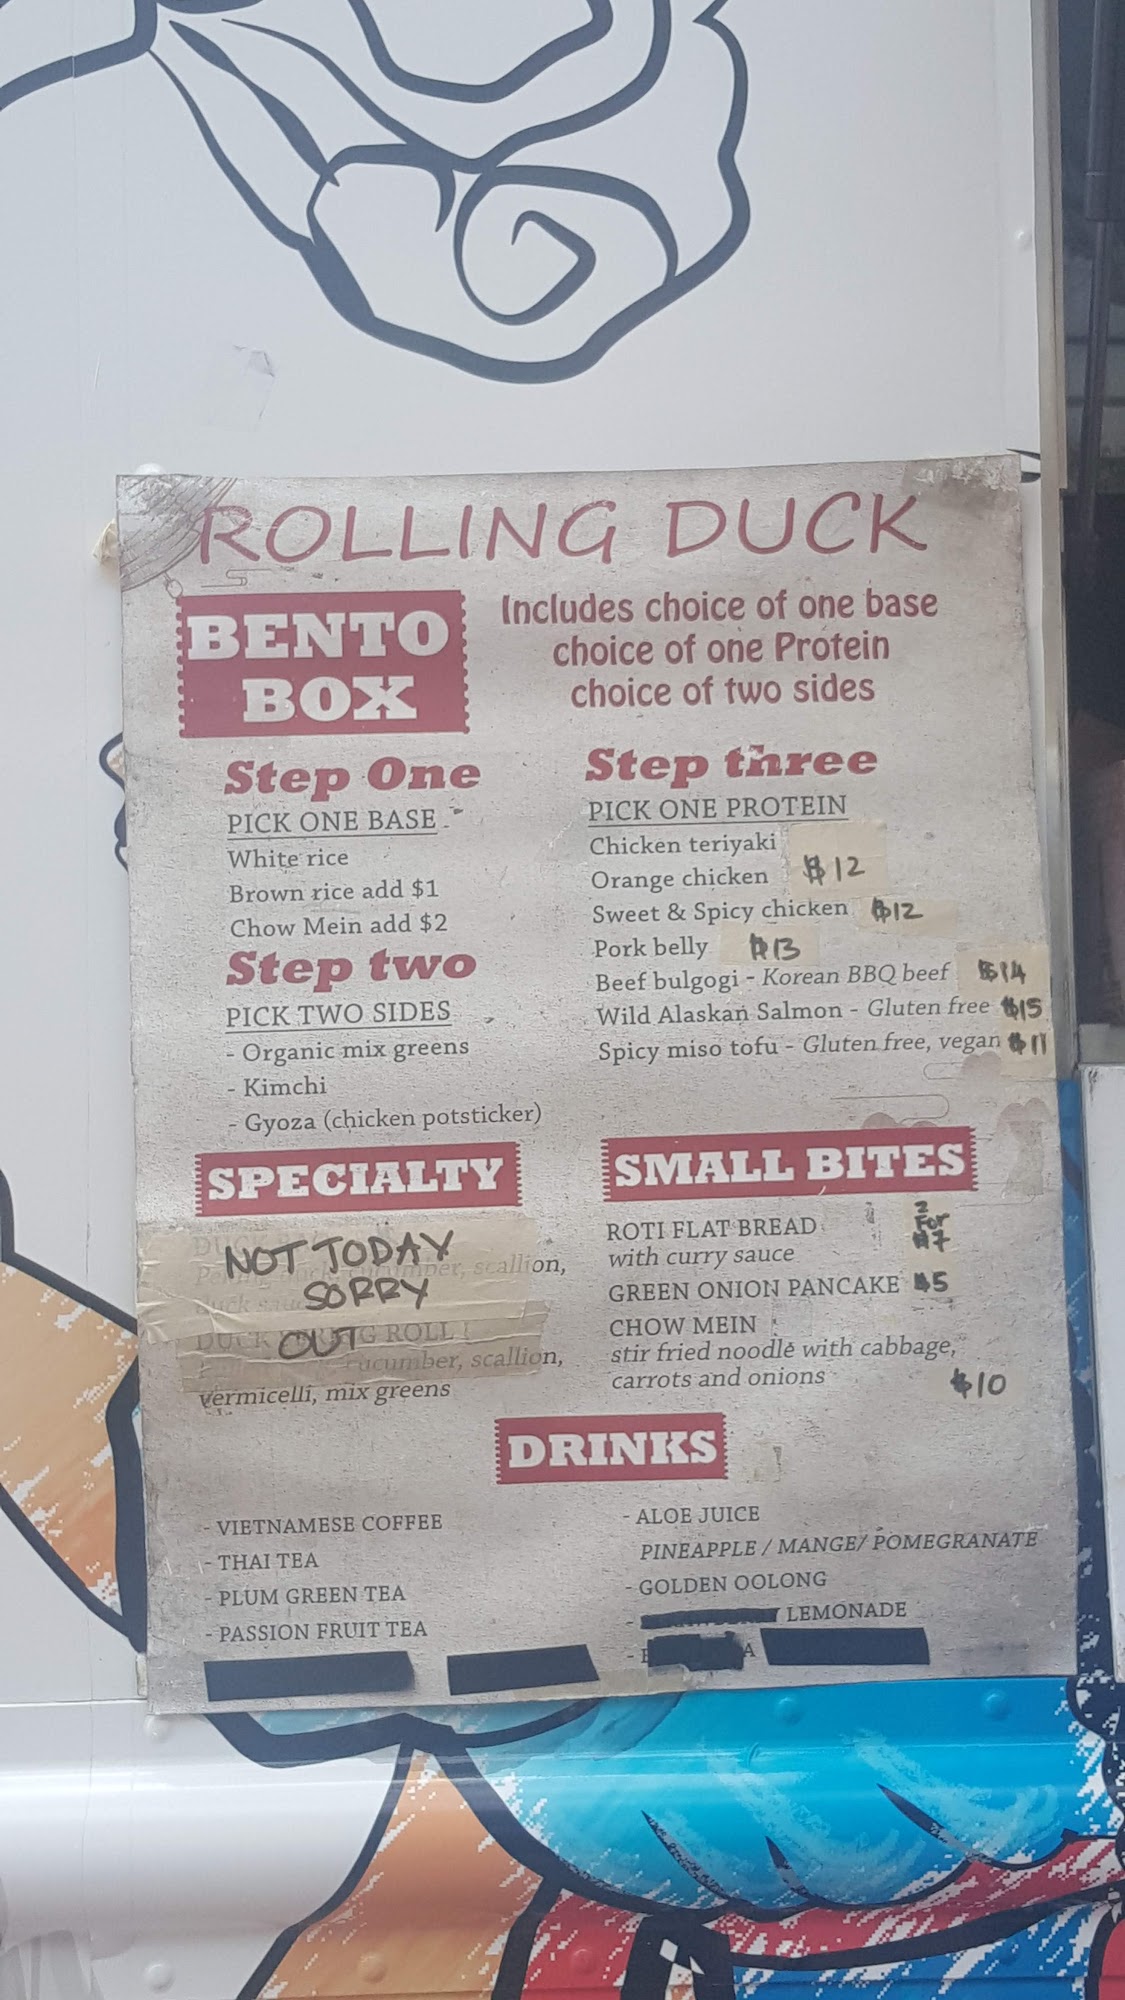 ROLLING DUCK
BENTO
BOX
Includes choice of one base
choice of one Protein
choice of two sides
Step One
PICK ONE BASE
White rice
Brown rice add $1
Chow Mein add $2
Step two
PICK TWO SIDES
- Organic mix greens
- Kimchi
- Gyoza (chicken potsticker)
Step three
PICK ONE PROTEIN
Chicken teriyaki
Orange chicken $12
Sweet & Spicy chicken $12
Pork belly $13
Beef bulgogi - Korean BBQ beef $14
Wild Alaskan Salmon - Gluten free $15
Spicy miso tofu - Gluten free, vegan $11
SPECIALTY
NOT TODAY
SORRY
OUT
scallion,
duck
DUCK ROLL
cucumber, scallion,
vermicelli, mix greens
SMALL BITES
ROTI FLAT BREAD 2 For $7
with curry sauce
GREEN ONION PANCAKE $5
CHOW MEIN
stir fried noodle with cabbage,
carrots and onions $10
DRINKS
- VIETNAMESE COFFEE
- THAI TEA
- PLUM GREEN TEA
- PASSION FRUIT TEA
- ALOE JUICE
PINEAPPLE / MANGE/ POMEGRANATE
- GOLDEN OOLONG
- LEMONADE